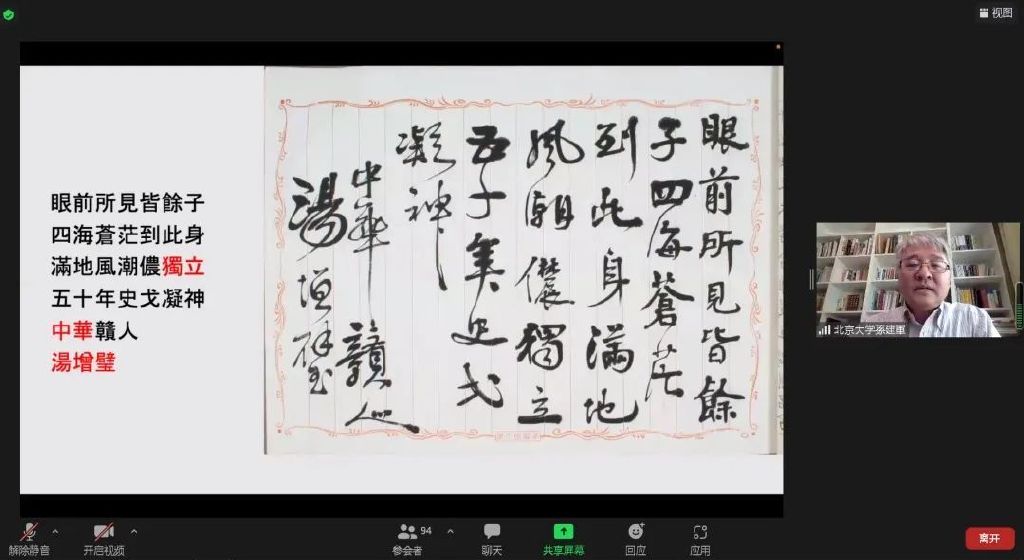 视图
眼前所見皆餘子
四海蒼茫到此身
滿地風潮儂獨立
五十年史戈凝神
中華贛人
湯增璧
眼前所見皆餘
子四海蒼茫
到此身滿地
風潮儂獨立
五十年史戈
凝神
中華贛人
湯增璧
北京大学孫建軍
解除静音
开启视频
参会者 94
聊天
共享屏幕
回应
应用
离开